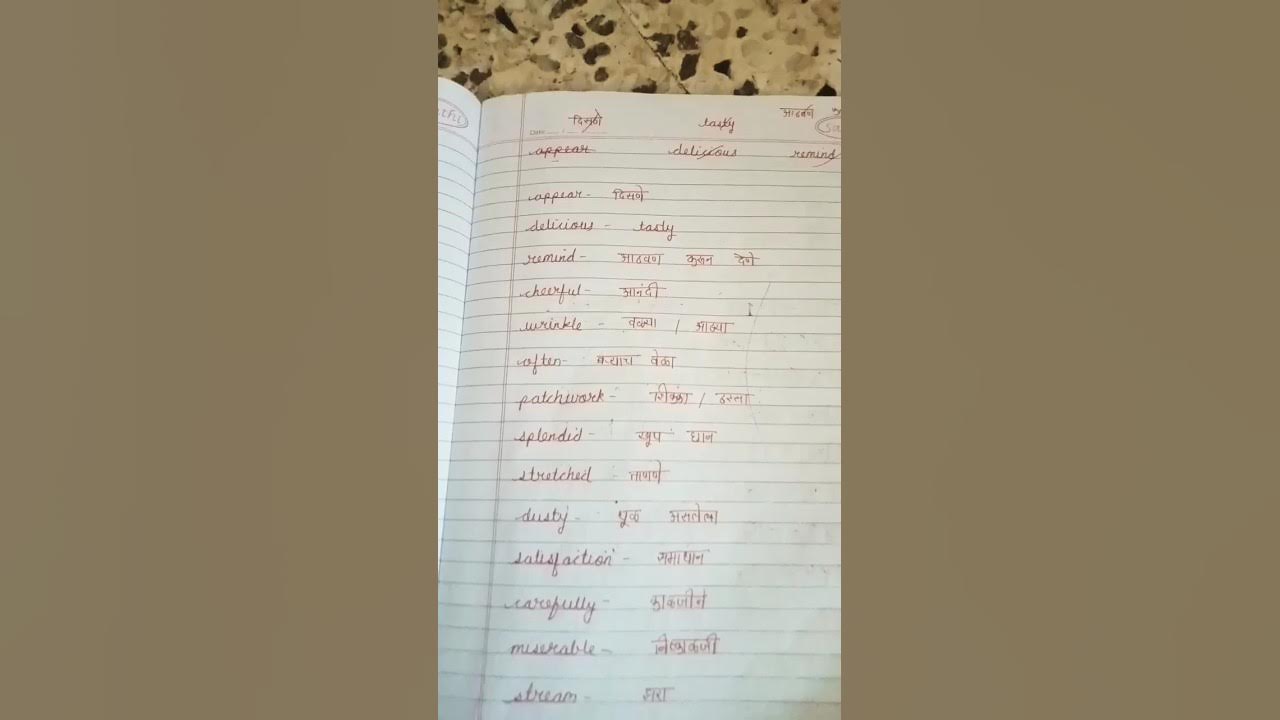 दिसणे tasty आठवण
Date
appear delicious remind
appear - दिसणे
delicious - tasty
remind - आठवण करून देणे
cheerful - आनंदी
wrinkle - वळ्या / आठ्या
often - बऱ्याच वेळा
patchwork - / 
splendid - खूप छान
stretched - ताणणे
dusty - धूळ असलेला
satisfaction - समाधान
carefully - काळजीने
miserable - निष्काळजी
stream - झरा